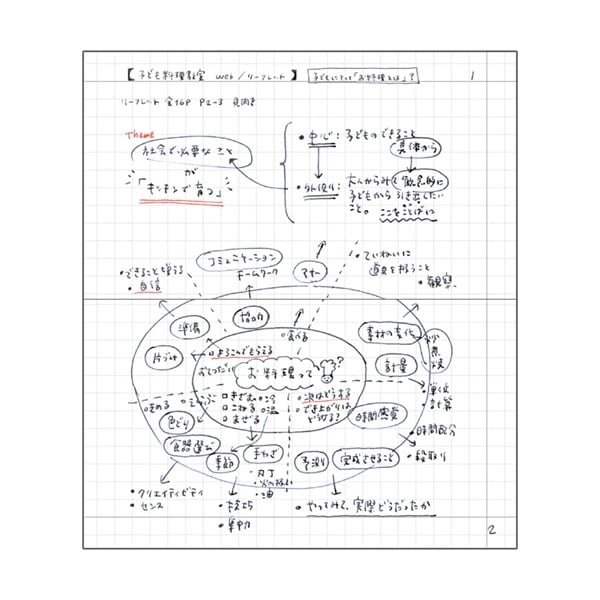 【子ども料理教室 web/リーフレット】 子どもにとって「お料理とは」? 1
リーフレット 全16P P2-3 見開き
Theme
社会で必要なこと
が
「キッチンで育つ」
・中心:子どものできること
具体から
・外側:大人からみて概念的に
子どもから引き出したい
こと。ここをことばに
コミュニケーション
チームワーク
マナー
・ていねいに
道具を扱うこと
・観察
・できること増える
・自信
協力
食べる
準備
素材の変化
炒
煮
焼
片づけ
よろこんでもらえる
おてつだい
お料理って?
計量
・単位
計算
きざむ
こねる
まぜる
次はどうする
でき上がりは
どうなる?
時間感覚
・時間配分
・段取り
色どり
食器選び
季節
手わざ
・刃工
予測
完成させること
・クリエイティビティ
・センス
・技巧
・集中力
・やってみて、実際どうだったか
2